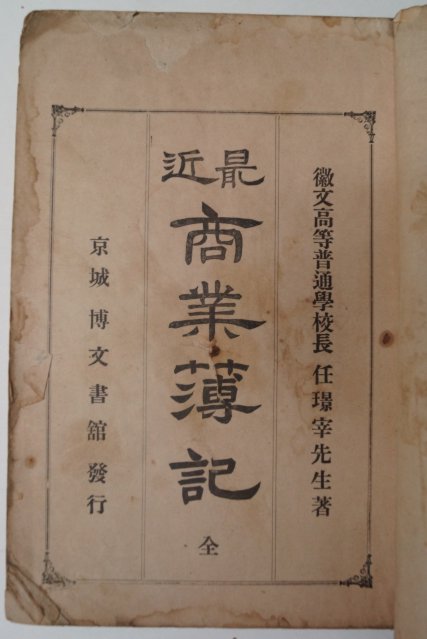 徽文高等普通學校長 任璟宰先生著
最近
商業薄記
全
京城 博文書舘 發行